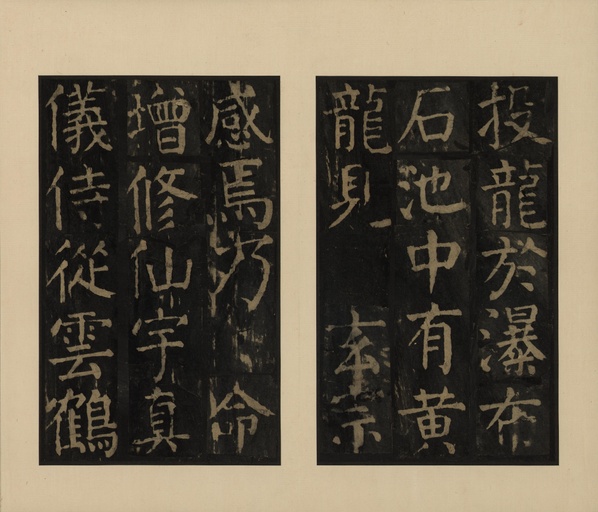 投龍於瀑布
石池中有黄
龍見玄宗
感焉乃命
增修仙宇真
儀侍從雲鶴